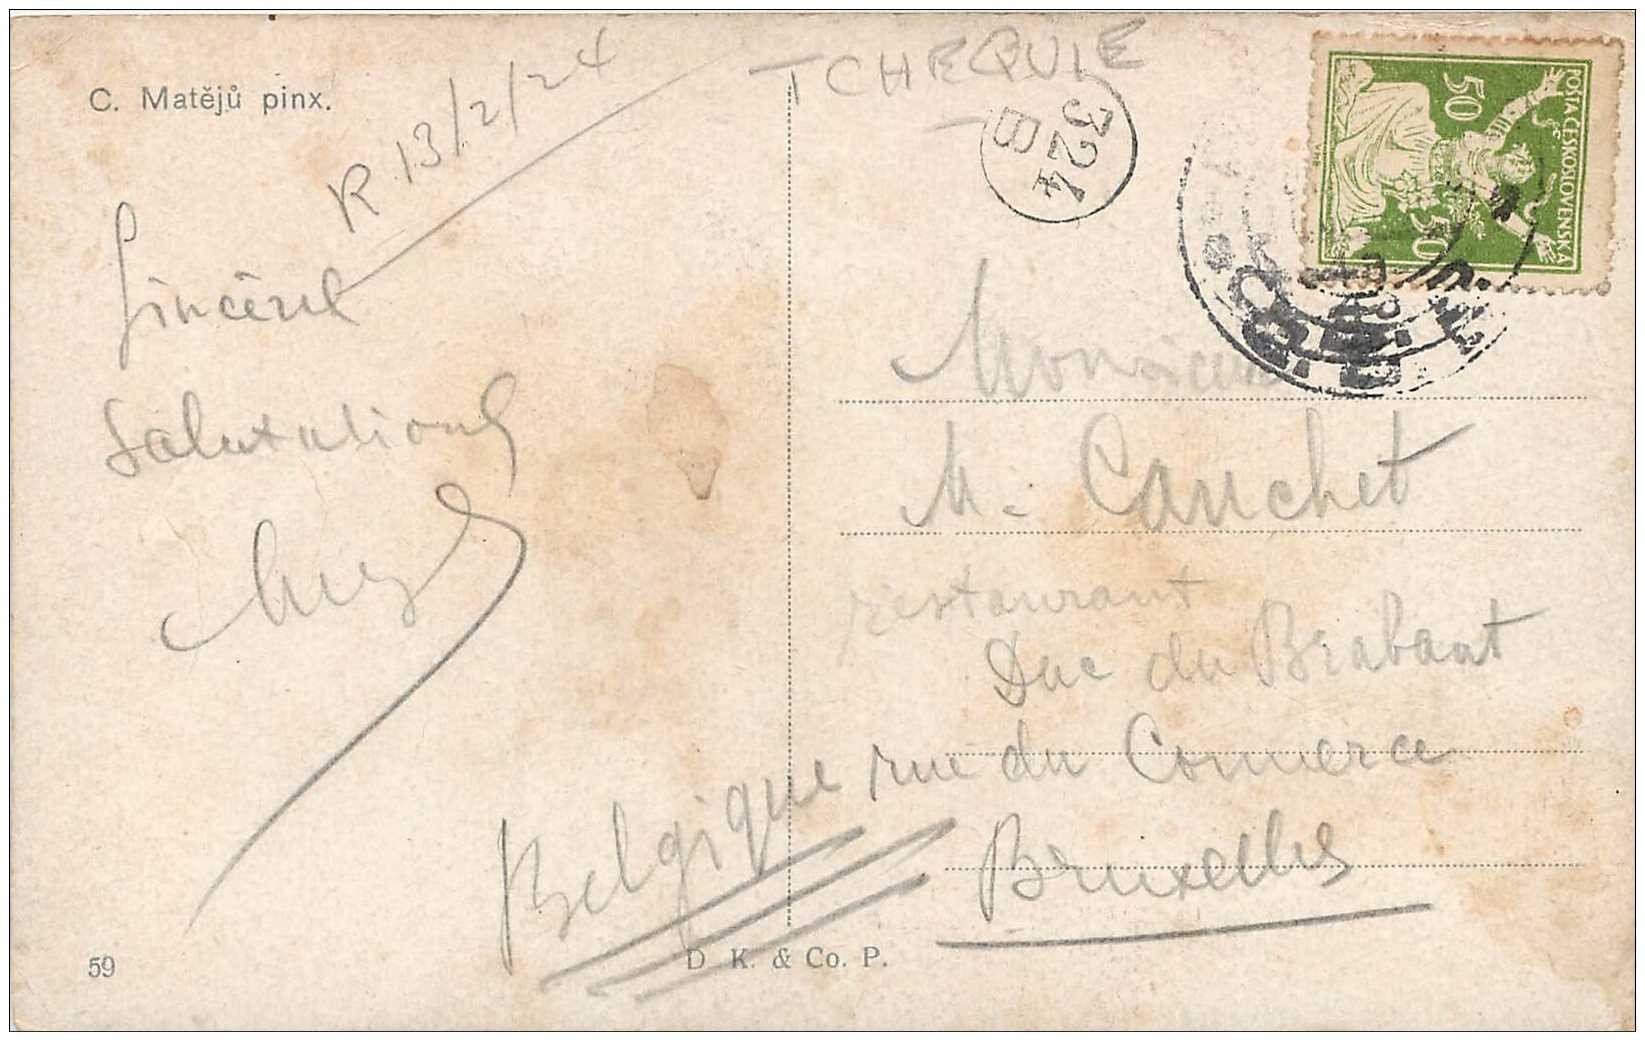 C. Matějů pinx.
R 13/2/24
TCHEQUIE
324
B
POŠTA ČESKOSLOVENSKÁ
50
50
Sincères
Salutations
Monsieur
M. Cauchet
restaurant
Duc du Brabant
rue du Comerce
Bruxelles
Belgique
59
D. K. & Co. P.